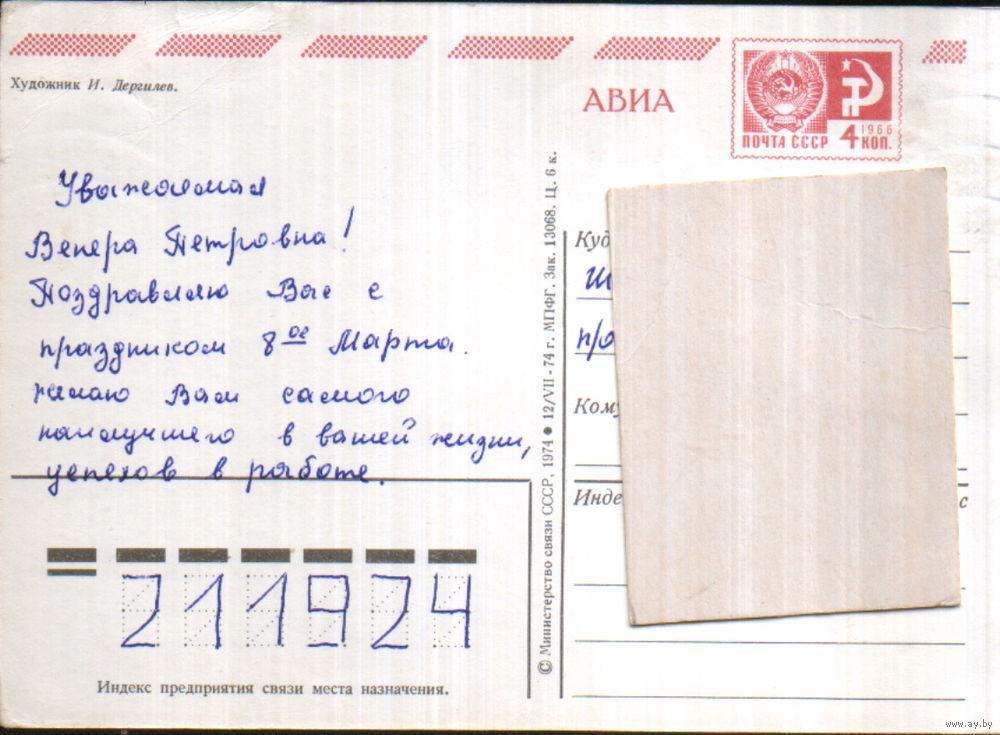 Художник И. Дергилев.
АВИА
ПОЧТА СССР
1966
4 КОП.
Уважаемая
Венера Петровна!
Поздравляю Вас с
праздником 8ое Марта.
желаю Вам самого
наилучшего в вашей жизни,
успехов в работе.
211924
Индекс предприятия связи места назначения.
© Министерство связи СССР, 1974 ● 12/VII - 74 г. МПФГ. Зак. 13068. Ц. 6 к.
Куд
п/о
Кому
Инде
с
www.ay.by